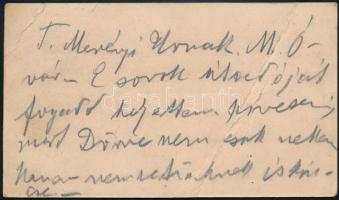 T. Merényi Úrnak. M. Ó-
vár – E sorok átadóját
fogadd helyettem szívesen,
mert Dörre nem csak nekem
hanem nemzetünknek is kin-
cse –